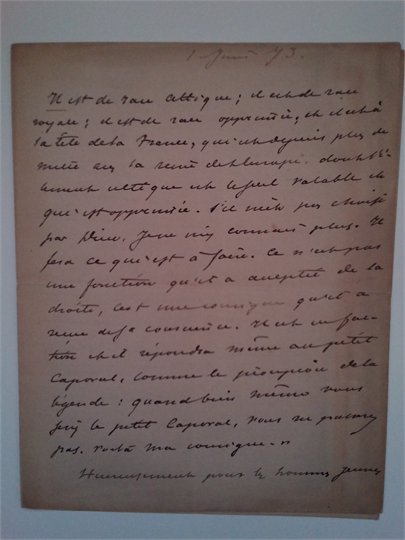 1 Juin 73.
Il est de race Celtique ; il est de race
royale ; il est de race opprimée, et il est à
la tête de la France, qui est depuis plus de
mille ans la reine de l'Europe. dont l'é-
lément celtique est le seul valable et
qui est opprimée. S'il n'est pas choisi
par Dieu, je ne m'y connais plus. Il
fera ce qui est à faire. Ce n'est pas
une fonction qu'il a acceptée de la
droite, c'est une consigne qu'il a
reçue de sa conscience. Il est en fac-
tion et il répondra même au petit
Caporal, comme le pioupiou de la
légende : quand bien même vous
seriez le petit Caporal, vous ne passerez
pas. voilà ma consigne. »
Heureusement pour les hommes jeunes